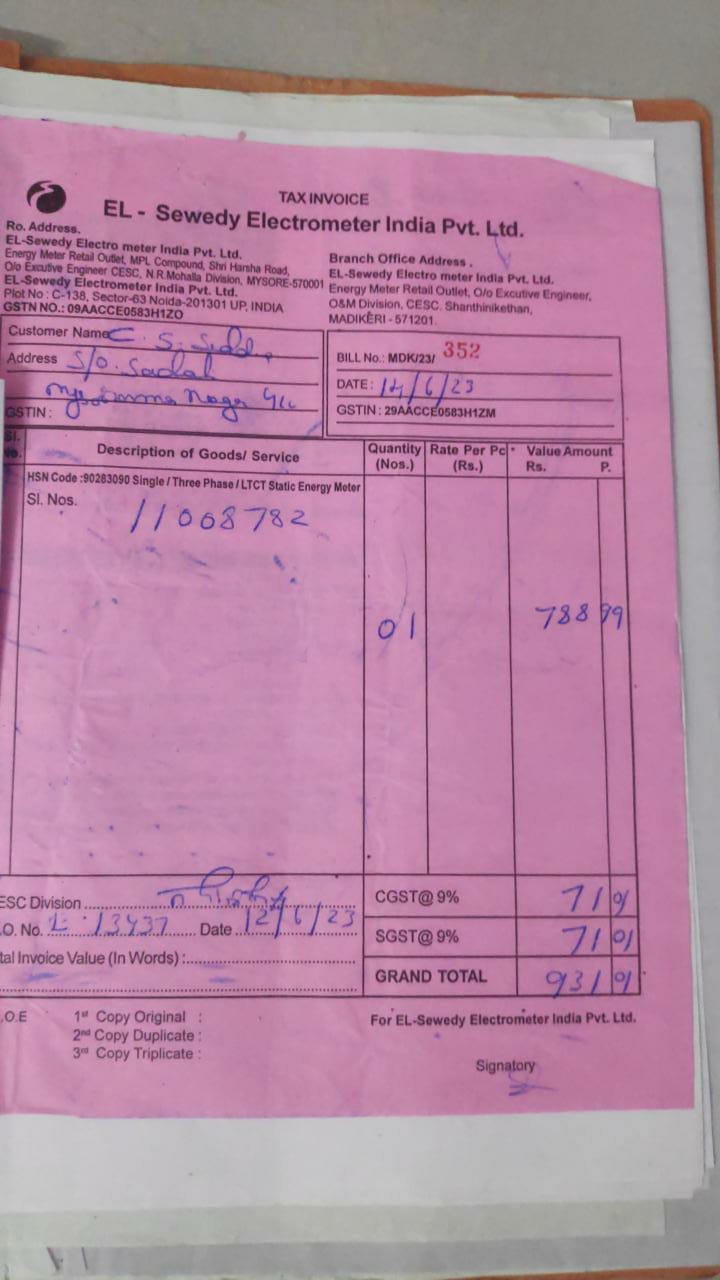 TAX INVOICE
EL - Sewedy Electrometer India Pvt. Ltd.
Ro. Address.
EL-Sewedy Electro meter India Pvt. Ltd.
Energy Meter Retail Outlet, MPL Compound, Shri Harsha Road,
O/o Excutive Engineer CESC, N.R.Mohalla Division, MYSORE-570001
EL-Sewedy Electrometer India Pvt. Ltd.
Plot No : C-138, Sector-63 Noida-201301 UP, INDIA
GSTN NO.: 09AACCE0583H1ZO
Branch Office Address .
EL-Sewedy Electro meter India Pvt. Ltd.
Energy Meter Retail Outlet, O/o Excutive Engineer,
O&M Division, CESC. Shanthinikethan,
MADIKERI - 571201.
Customer Name C. S.
Address S/o.
GSTIN :
BILL No.: MDK/23/ 352
DATE : 14/6/23
GSTIN : 29AACCE0583H1ZM
Sl. No. Description of Goods/ Service Quantity (Nos.) Rate Per Pc (Rs.) Value Amount Rs. P.
HSN Code :90283090 Single / Three Phase / LTCT Static Energy Meter
Sl. Nos. 11008782
01 788 99
ESC Division
O. No. 13437 Date 12/6/23
tal Invoice Value (In Words) :
CGST@ 9% 71 01
SGST@ 9% 71 01
GRAND TOTAL 931 01
.O.E 1st Copy Original :
2nd Copy Duplicate :
3rd Copy Triplicate :
For EL-Sewedy Electrometer India Pvt. Ltd.
Signatory